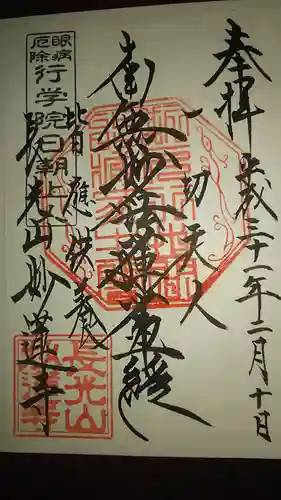 奉拝
平成三十一年二月十日
一切天人
南無妙法蓮華経
皆應供養
眼病
厄除
行学院日朝上
長光山妙蓮寺
長光山
妙蓮寺